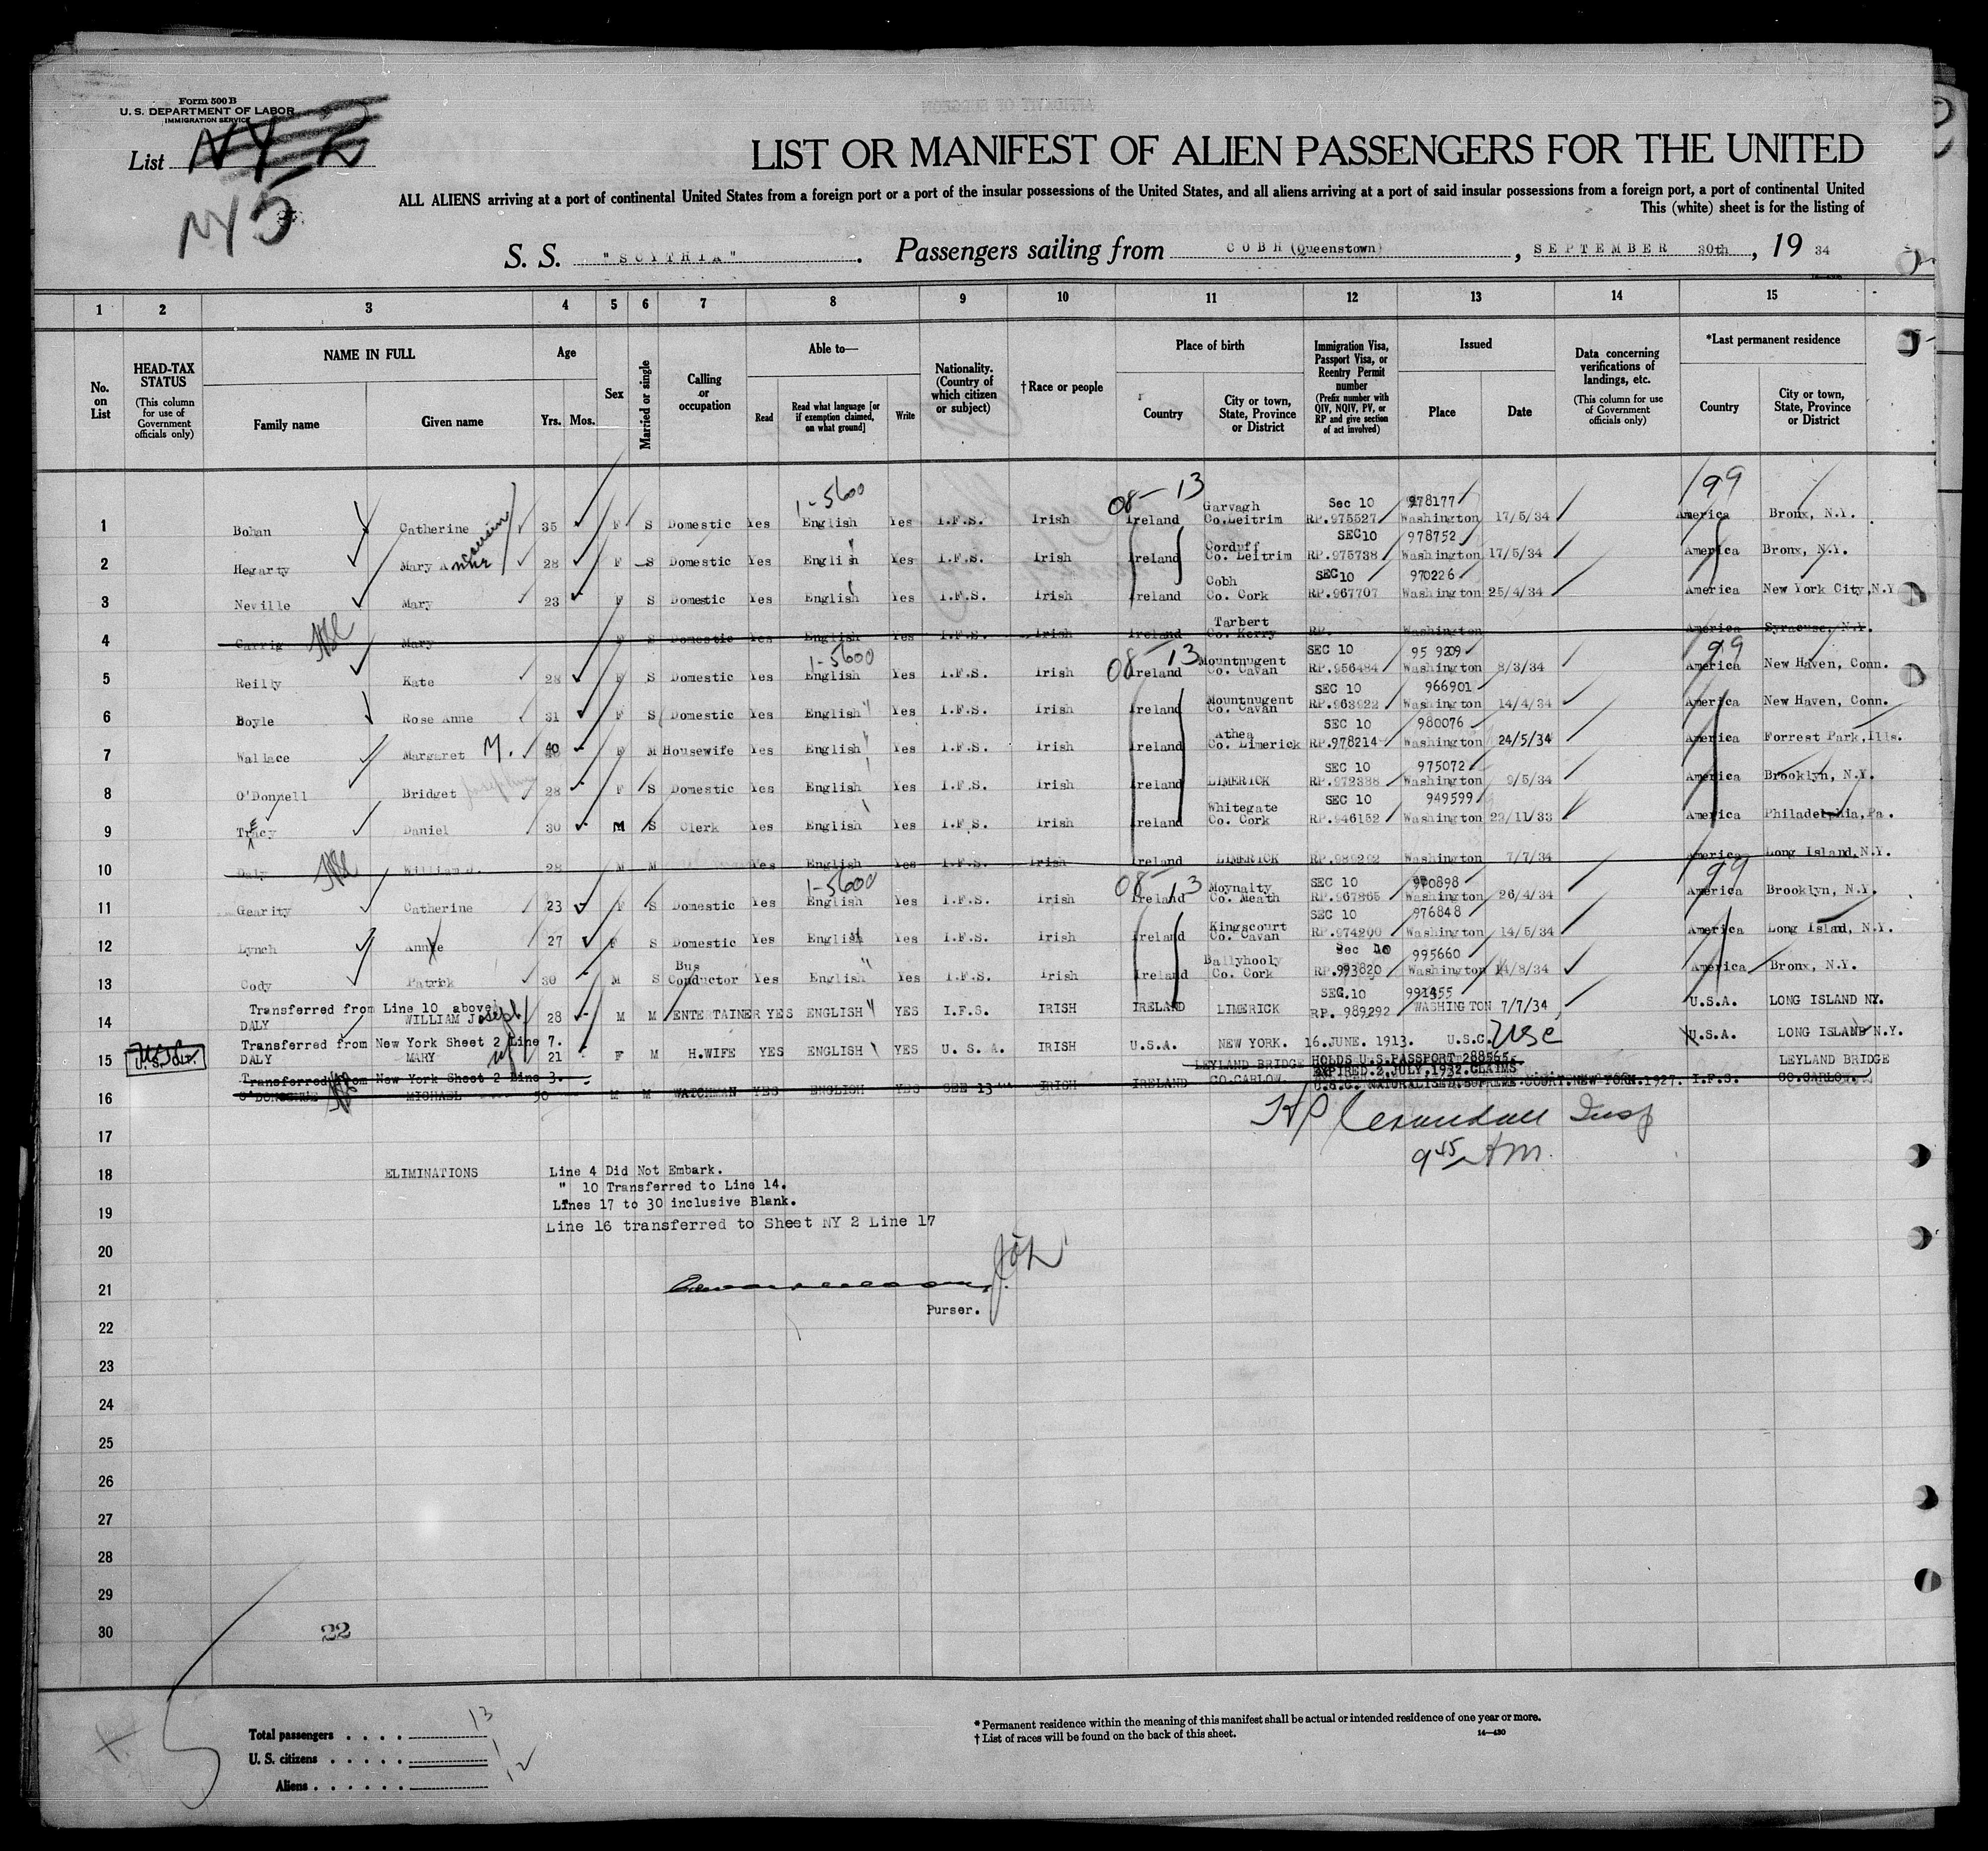 Form 500 B
U. S. DEPARTMENT OF LABOR
IMMIGRATION SERVICE
List NY 2
NY 5
LIST OR MANIFEST OF ALIEN PASSENGERS FOR THE UNITED
ALL ALIENS arriving at a port of continental United States from a foreign port or a port of the insular possessions of the United States, and all aliens arriving at a port of said insular possessions from a foreign port, a port of continental United
This (white) sheet is for the listing of
S. S. "SCYTHIA" . Passengers sailing from COBH (Queenstown) , SEPTEMBER 30th , 19 34
1 2 3 4 5 6 7 8 9 10 11 12 13 14 15
No. on List
HEAD-TAX STATUS
(This column for use of Government officials only)
NAME IN FULL
Family name Given name
Age
Yrs. Mos.
Sex
Married or single
Calling or occupation
Able to—
Read Read what language [or if exemption claimed, on what ground] Write
Nationality. (Country of which citizen or subject)
† Race or people
Place of birth
Country City or town, State, Province or District
Immigration Visa, Passport Visa, or Reentry Permit number
(Prefix number with QIV, NQIV, PV, or RP and give section of act involved)
Issued
Place Date
Data concerning verifications of landings, etc.
(This column for use of Government officials only)
*Last permanent residence
Country City or town, State, Province or District
1-5600 08-13 199
Garvagh Sec 10 978177
1 Bohan Catherine 35 F S Domestic Yes English Yes I.F.S. Irish Ireland Co.Leitrim RP.975527 Washington 17/5/34 America Bronx, N.Y.
cousin
Corduff SEC 10 978752
2 Hegarty Mary A 28 F S Domestic Yes English Yes I.F.S. Irish Ireland Co. Leitrim RP.975738 Washington 17/5/34 America Bronx, N.Y.
Cobh SEC 10 970226
3 Neville Mary 23 F S Domestic Yes English Yes I.F.S. Irish Ireland Co. Cork RP.967707 Washington 25/4/34 America New York City, N.Y
Tarbert
4 Carrig Mary F S Domestic Yes English Yes I.F.S. Irish Ireland Co. Kerry RP. Washington America Syracuse, N.Y.
1-5600 08-13 199
Mountnugent SEC 10 95 9209
5 Reilly Kate 28 F S Domestic Yes English Yes I.F.S. Irish Ireland Co. Cavan RP.956484 Washington 8/3/34 America New Haven, Conn.
Mountnugent SEC 10 966901
6 Boyle Rose Anne 31 F S Domestic Yes English Yes I.F.S. Irish Ireland Co. Cavan RP.963922 Washington 14/4/34 America New Haven, Conn.
Athea SEC 10 980076
7 Wallace Margaret M. 40 F M Housewife Yes English Yes I.F.S. Irish Ireland Co. Limerick RP.978214 Washington 24/5/34 America Forrest Park, Ills.
SEC 10 975072
8 O'Donnell Bridget 28 F S Domestic Yes English Yes I.F.S. Irish Ireland LIMERICK RP.972388 Washington 9/5/34 America Brooklyn, N.Y.
Whitegate SEC 10 949599
9 Tracy E Daniel 30 M S Clerk Yes English Yes I.F.S. Irish Ireland Co. Cork RP.946152 Washington 23/11/33 America Philadelphia, Pa.
10 Daly William J. 28 M M Yes English Yes I.F.S. Irish Ireland LIMERICK RP.989292 Washington 7/7/34 America Long Island, N.Y.
1-5600 08-13 199
Moynalty SEC 10 970898
11 Gearity Catherine 23 F S Domestic Yes English Yes I.F.S. Irish Ireland Co. Meath RP.967865 Washington 26/4/34 America Brooklyn, N.Y.
Kingscourt SEC 10 976848
12 Lynch Annie 27 F S Domestic Yes English Yes I.F.S. Irish Ireland Co. Cavan RP.974200 Washington 14/5/34 America Long Island, N.Y.
Bus Ballyhooly Sec 10 995660
13 Cody Patrick 30 M S Conductor Yes English Yes I.F.S. Irish Ireland Co. Cork RP.993820 Washington 14/8/34 America Bronx, N.Y.
Transferred from Line 10 above SEC.10 991455
14 DALY WILLIAM Joseph 28 M M ENTERTAINER YES ENGLISH YES I.F.S. IRISH IRELAND LIMERICK RP. 989292 WASHINGTON 7/7/34 U.S.A. LONG ISLAND NY.
Transferred from New York Sheet 2 Line 7.
15 DALY MARY wf 21 F M H.WIFE YES ENGLISH YES U. S. A. IRISH U.S.A. NEW YORK. 16.JUNE. 1913. U.S.C. USC U.S.A. LONG ISLAND N.Y.
Transferred from New York Sheet 2 Line 3. LEYLAND BRIDGE HOLDS U.S.PASSPORT 288565. EXPIRED.2.JULY,1932.CLAIMS LEYLAND BRIDGE
16 MICHAEL 50 M M WATCHMAN YES ENGLISH YES SEE 13 IRISH IRELAND CO.CARLOW. U.S.C. NATURALISED.SUPREME.COURT.NEW YORK.1927. I.F.S. CO.CARLOW.
Insp
9 45 AM.
17
18 ELIMINATIONS Line 4 Did Not Embark.
" 10 Transferred to Line 14.
19 Lines 17 to 30 inclusive Blank.
Line 16 transferred to Sheet NY 2 Line 17
20
21
Purser.
22
23
24
25
26
27
28
29
30
22
Total passengers . . . . 13
U. S. citizens . . . . . 1
Aliens . . . . . . 12
* Permanent residence within the meaning of this manifest shall be actual or intended residence of one year or more.
† List of races will be found on the back of this sheet.
14—430